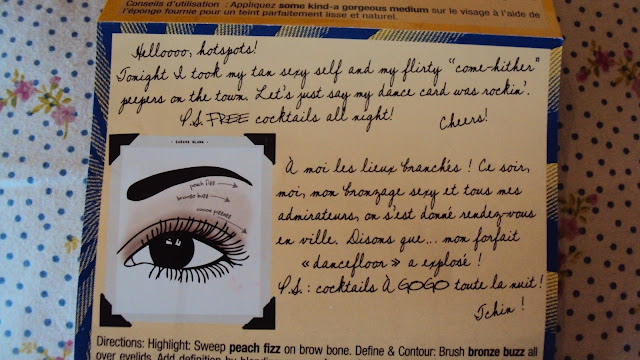 Conseils d'utilisation : Appliquez some kind-a gorgeous medium sur le visage à l'aide de
l'éponge fournie pour un teint parfaitement lisse et naturel.
Helloooo, hotspots!
Tonight I took my tan sexy self and my flirty "come-hither"
peepers on the town. Let's just say my dance card was rockin'.
P.S. FREE cocktails all night!
Cheers!
peach fizz
bronze buzz
À moi les lieux branchés ! Ce soir,
moi, mon bronzage sexy et tous mes
admirateurs, on s'est donné rendez-vous
en ville. Disons que... mon forfait
« dancefloor » a explosé !
P.S. : cocktails À GOGO toute la nuit !
Tchin !
Directions: Highlight: Sweep peach fizz on brow bone. Define & Contour: Brush bronze buzz all
over eyelids. Add definition by